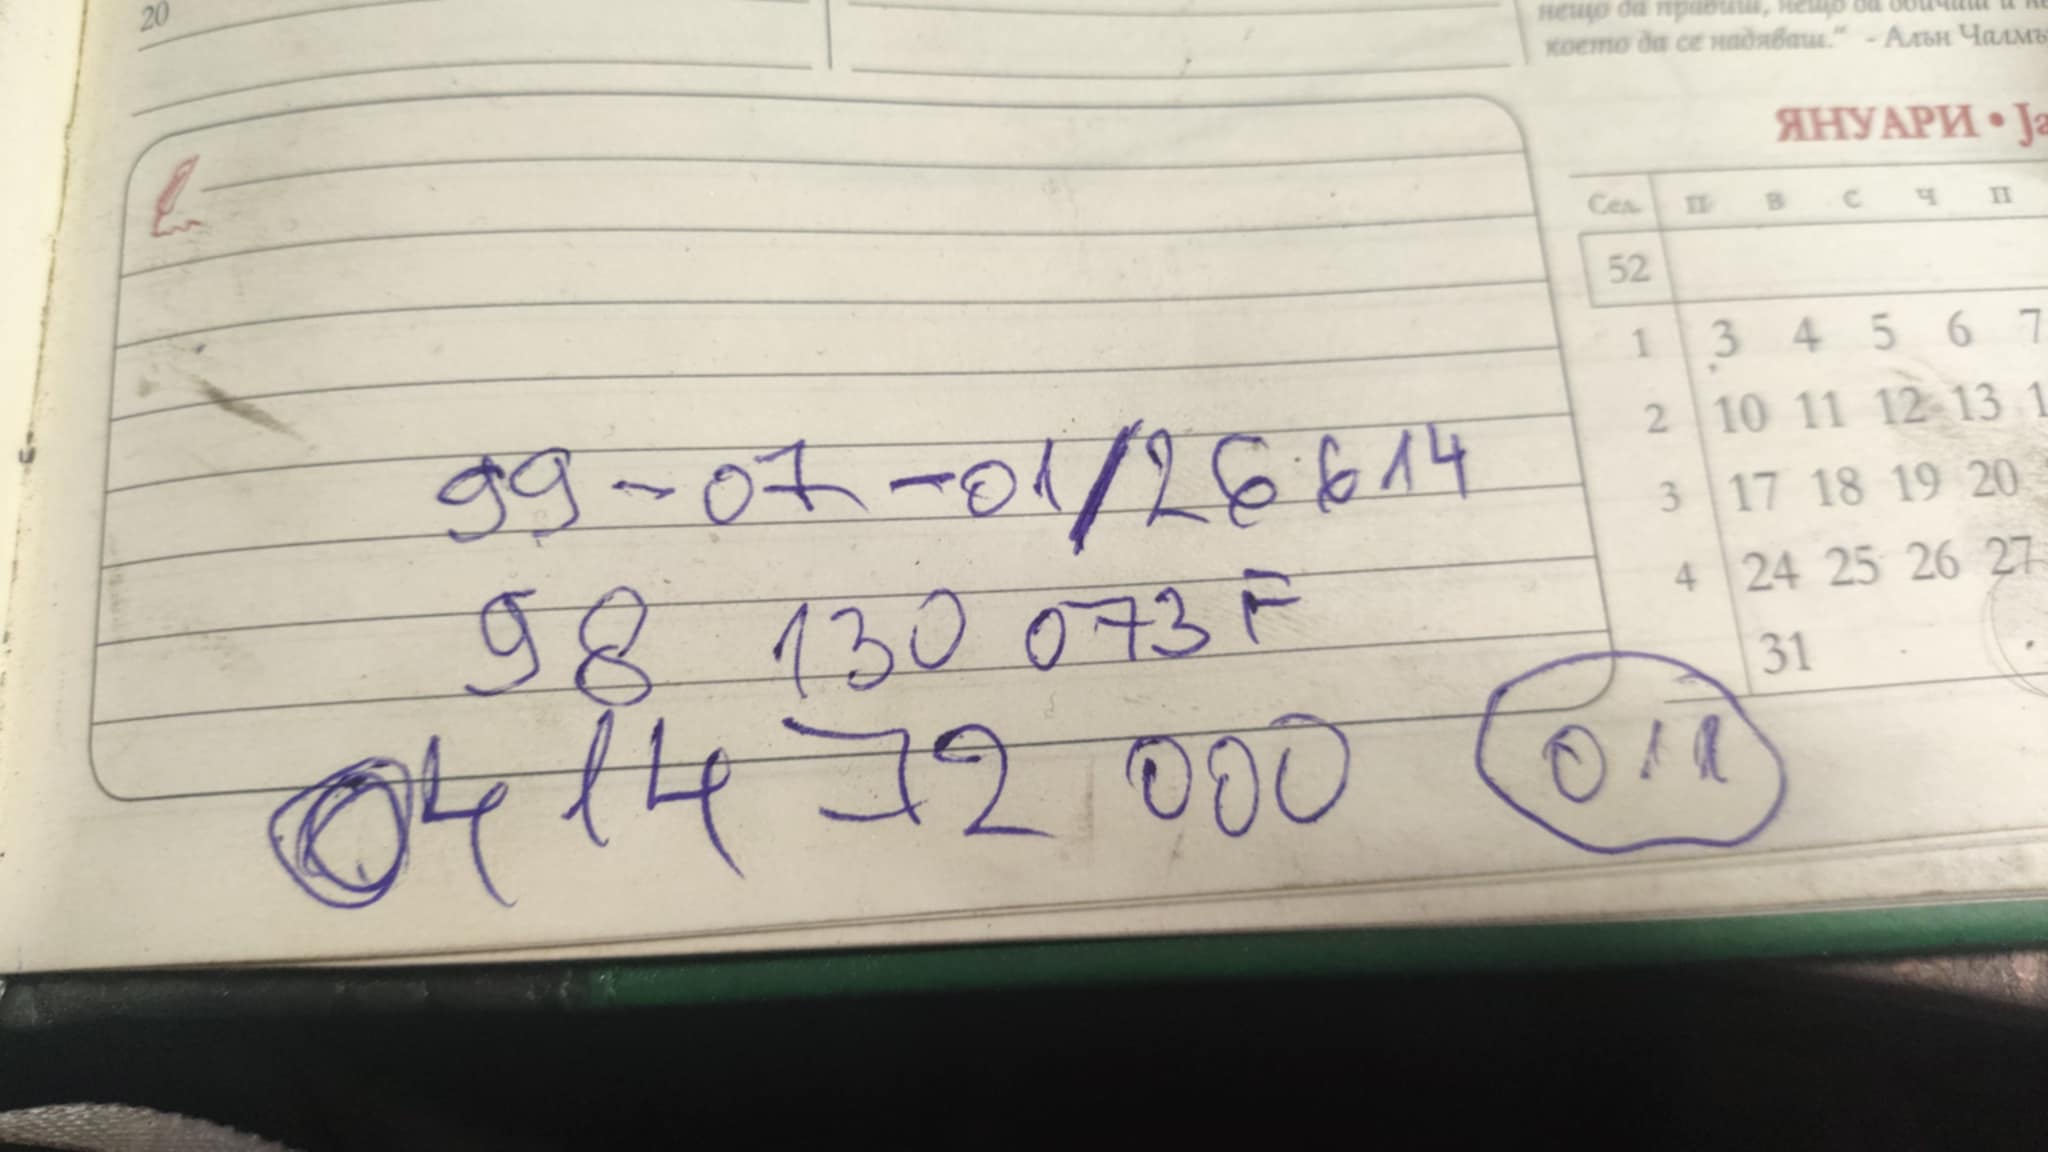 20
нещо да правиш, нещо да обичаш и
което да се надяваш." - Алън Чалмъ
ЯНУАРИ • Ja
Сед. П В С Ч П
52
1 3 4 5 6 7
2 10 11 12 13 1
3 17 18 19 20
4 24 25 26 27
31
99-07-01/26614
98 130 073F
0414 72 000 011